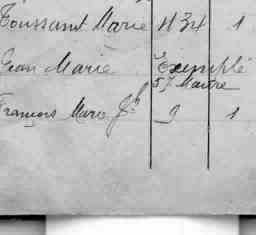 Toussaint Marie 434 1
Jean Marie Exempté
57 Maitre
François Marie Jh 9 1